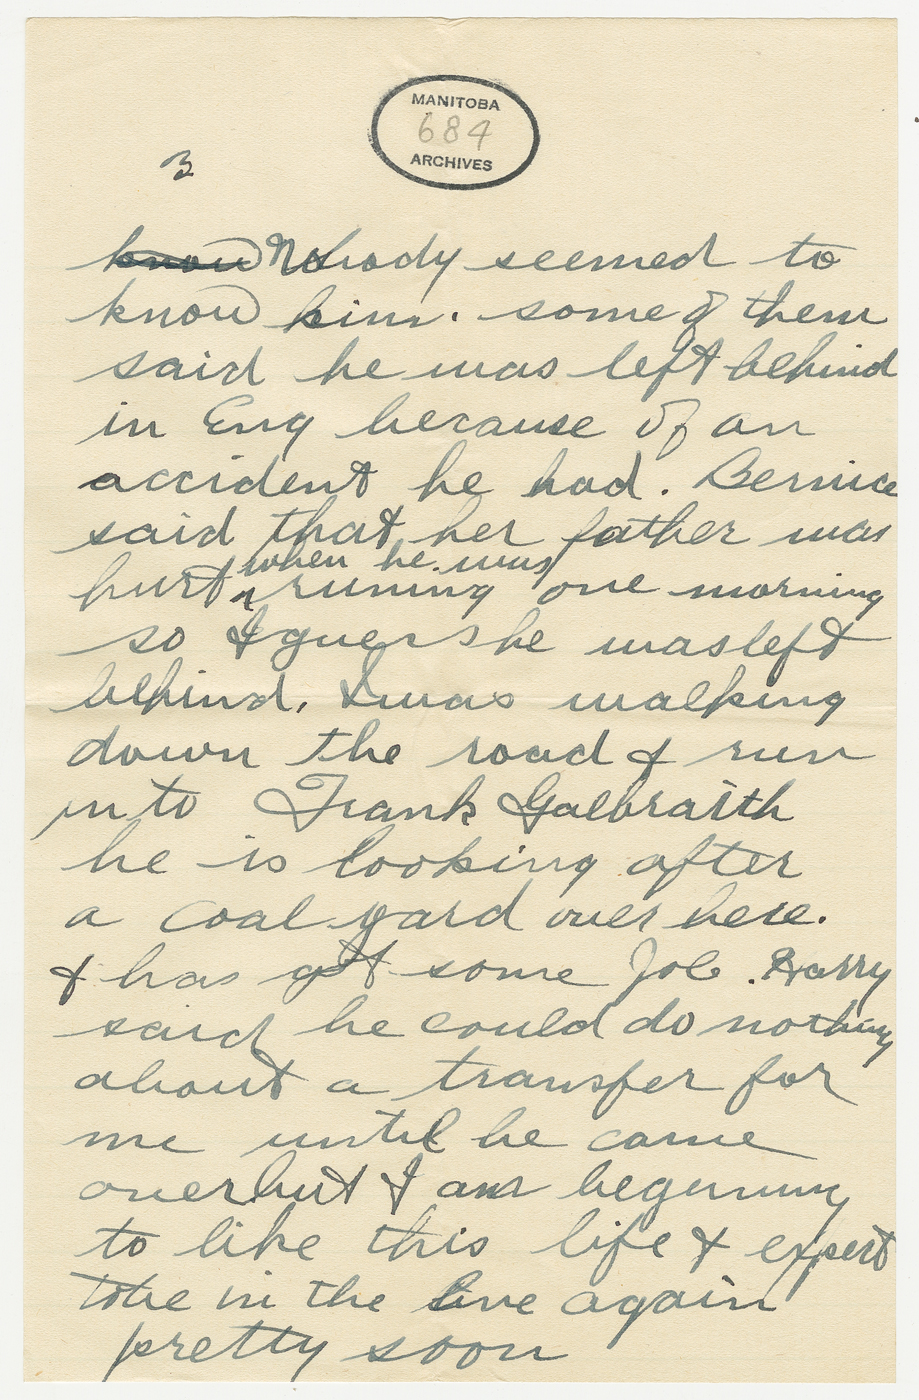 MANITOBA
684
ARCHIVES
3
know Nobody seemed to
know him. some of them
said he was left behind
in Eng because of an
accident he had. Bernice
said that her father was
when he was
hurt runing one morning
so I guess he was left
behind. I was walking
down the road & run
in to Frank Galbraith
he is looking after
a coal yard over here.
& has got some Job. Harry
said he could do nothing
about a transfer for
me until he came
over but I am beginning
to like this life & expect
to be in the line again
pretty soon